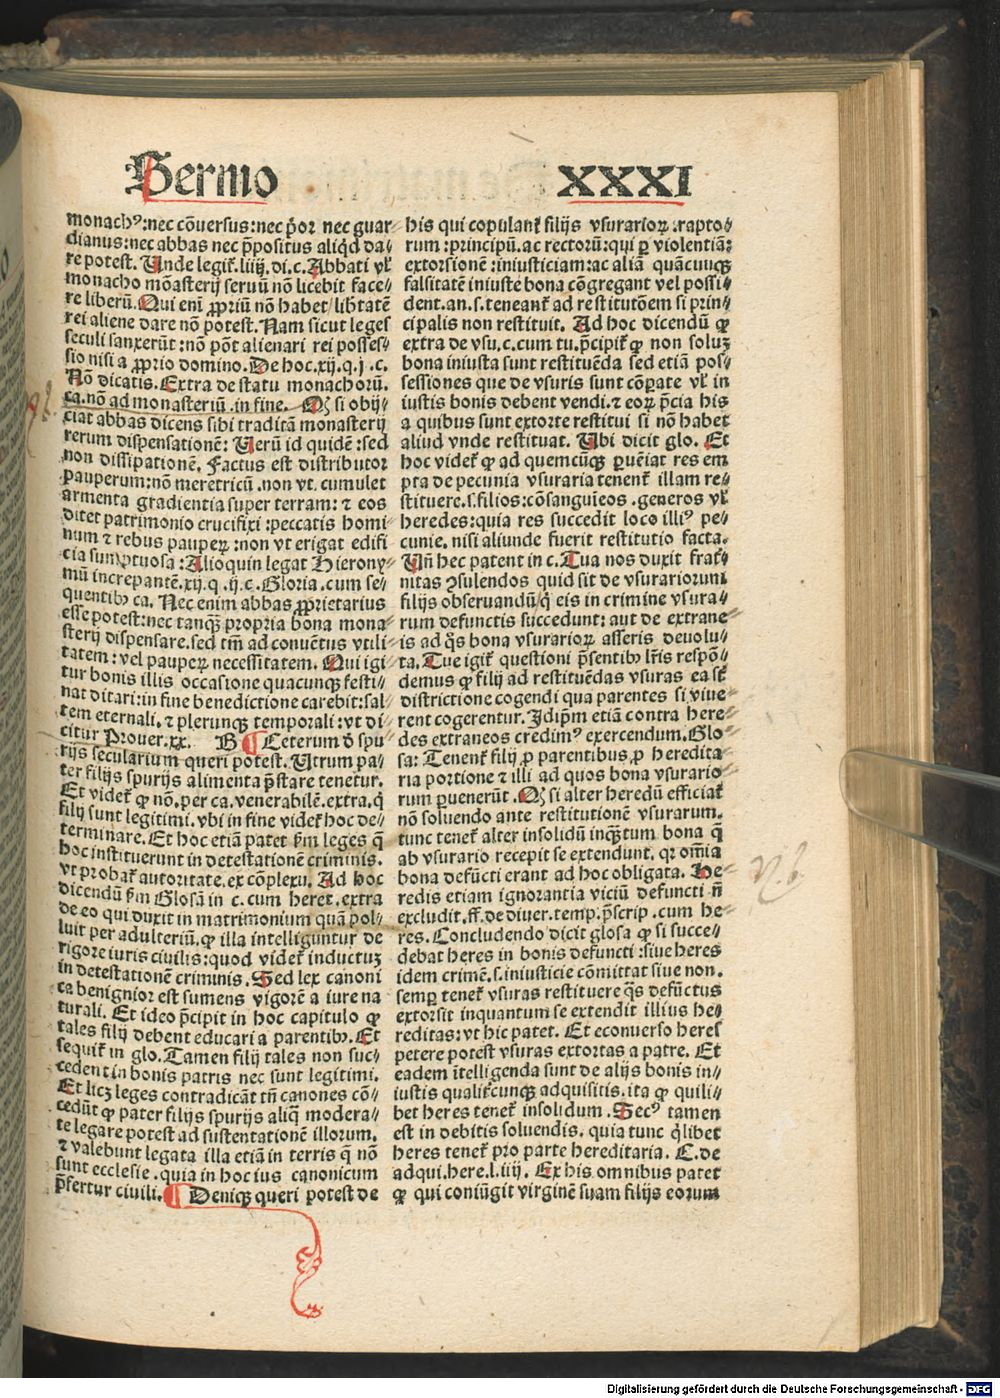 Sermo XXXI
monachꝰ:nec cōuersus:nec p̄or nec guar⸗
dianus:nec abbas nec p̄positus aliqd da⸗
re potest. Unde legit̃.liiij.di.c.Abbati vł
monacho mōasterij seruū nō licebit face⸗
re liberū.Qui eni ꝓpriū nō habet/libtatē
rei aliene dare nō potest.Nam sicut leges
seculi sanxerūt:nō pōt alienari rei posses⸗
sio nisi a ꝓprio domino.De hoc.xij.q.j.c.
Nō dicatis.Extra de statu monachorū.
ca.nō ad monasteriū.in fine. Qꝫ si obij⸗
ciat abbas dicens sibi traditā monasterij
rerum dispensationē: Verū id quidē:sed
non dissipationē. Factus est distributor
pauperum:nō meretricū.non vt cumulet
armenta gradientia super terram:⁊ eos
ditet patrimonio crucifixi:peccatis homi⸗
num ⁊ rebus pauperꝝ:non vt erigat edifi
cia sumptuosa:Alioquin legat Hierony⸗
mū increpantē.xij.q.ij.c.Gloria.cum se⸗
quentibꝫ ca. Nec enim abbas ꝓprietarius
esse potest:nec tanqꝫ propria bona mona⸗
sterij dispensare.sed tm̄ ad conuētus vtili⸗
tatem:vel pauperꝝ necessitatem. Qui igi⸗
tur bonis illis occasione quacunqꝫ festi⸗
nat ditari:in fine benedictione carebit:sal⸗
tem eternali.⁊ plerunqꝫ temporali:vt di⸗
citur Prouer.xx. B ¶ Ceterum d̄ spu⸗
rijs secularium queri potest.Utrum pa⸗
ter filijs spurijs alimenta p̄stare tenetur.
Et videt̃ ꝙ nō.per ca.venerabilē.extra.q̄
filij sunt legitimi.vbi in fine videt̃ hoc de⸗
terminare.Et hoc etiā patet p̄m leges q̄
hoc instituerunt in detestationē criminis.
vt probat̃ autoritate.ex cōplexu. Ad hoc
dicendū p̄m Glosā in c.cum heret.extra
de eo qui duxit in matrimonium quā pol⸗
luit per adulteriū.ꝙ illa intelliguntur de
rigore iuris ciuilis:quod videt̃ inductuꝫ
in detestationē criminis.Sed lex canoni
ca benignior est sumens vigorē a iure na
turali. Et ideo p̄cipit in hoc capitulo ꝙ
tales filij debent educari a parentibꝫ.Et
sequit̃ in glo.Tamen filij tales non suc⸗
cedent in bonis patris nec sunt legitimi.
Et licꝫ leges contradicāt tn̄ canones cō⸗
cedūt ꝙ pater filijs spurijs aliq̄ modera⸗
te legare potest ad sustentationē illorum.
⁊ valebunt legata illa etiā in terris q̄ nō
sunt ecclesie.quia in hoc ius canonicum
p̄fertur ciuili.¶ Deniqꝫ queri potest de
his qui copulant̃ filijs vsurarioꝝ.rapto⸗
rum:principū.ac rectorū:qui ꝑ violentiā:
extorsionē:iniusticiam:ac aliā quācunqꝫ
falsitatē iniuste bona cōgregant vel possi⸗
dent.an.s.teneant̃ ad restitutōem si prin⸗
cipalis non restituit. Ad hoc dicendū ꝙ
extra de vsu.c.cum tu.p̄cipit̃ ꝙ non soluꝫ
bona iniusta sunt restituēda sed etiā pos⸗
sessiones que de vsuris sunt cōpate vł in
iustis bonis debent vendi.⁊ eoꝝ p̄cia his
a quibus sunt extorte restitui si nō habet
aliud vnde restituat. Ubi dicit glo. Et
hoc videt̃ ꝙ ad quemcūqꝫ ꝑuēiat res em
pta de pecunia vsuraria tenent̃ illam re⸗
stituere.s.filios:cōsanguieos.generos vł
heredes:quia res succedit loco illiꝰ pe⸗
cunie.nisi aliunde fuerit restitutio facta.
Vn̄ hec patent in c.Tua nos duxit frat̃⸗
nitas ꝯsulendos quid sit de vsurariorum
filijs obseruandū q̄ eis in crimine vsura⸗
rum defunctis succedunt:aut de extrane⸗
is ad q̄s bona vsurarioꝝ asseris deuolu⸗
ta.Tue igit̃ questioni p̄sentibꝫ lr̄is respō⸗
demus ꝙ filij ad restituēdas vsuras ea st̄
districtione cogendi qua parentes si viue⸗
rent cogerentur.Idip̄m etiā contra here⸗
des extraneos credimꝰ exercendum.Glo⸗
sa: Tenent̃ filij ꝓ parentibus ꝓ heredita⸗
ria portione ⁊ illi ad quos bona vsurario⸗
rum ꝑuenerūt.Qꝫ si alter heredū efficiat̃
nō soluendo ante restitutionē vsurarum.
tunc tenet̃ alter insolidū inqꝫtum bona q̄
ab vsurario recepit se extendunt.qr om̄ia
bona defūcti erant ad hoc obligata. He⸗
redis etiam ignorantia viciū defuncti n̄
excludit.ff.de diuer.temp.p̄scrip.cum he⸗
res.Concludendo dicit glosa ꝙ si succe⸗
debat heres in bonis defuncti:siue heres
idem crimē.s.iniusticie cōmittat siue non.
semꝑ tenet̃ vsuras restituere q̄s defūctus
extorsit inquantum se extendit illius he⸗
reditas:vt hic patet. Et econuerso heres
petere potest vsuras extortas a patre. Et
eadem ītelligenda sunt de alijs bonis in⸗
iustis qualit̃cunqꝫ adquisitis.ita ꝙ quili⸗
bet heres tenet̃ insolidum.Secꝰ tamen
est in debitis soluendis.quia tunc q̄libet
heres tenet̃ pro parte hereditaria. C.de
adqui.here.l.iiij. Ex his omnibus patet
ꝙ qui coniūgit virginē suam filijs eorum
Digitalisierung gefördert durch die Deutsche Forschungsgemeinschaft - DFG